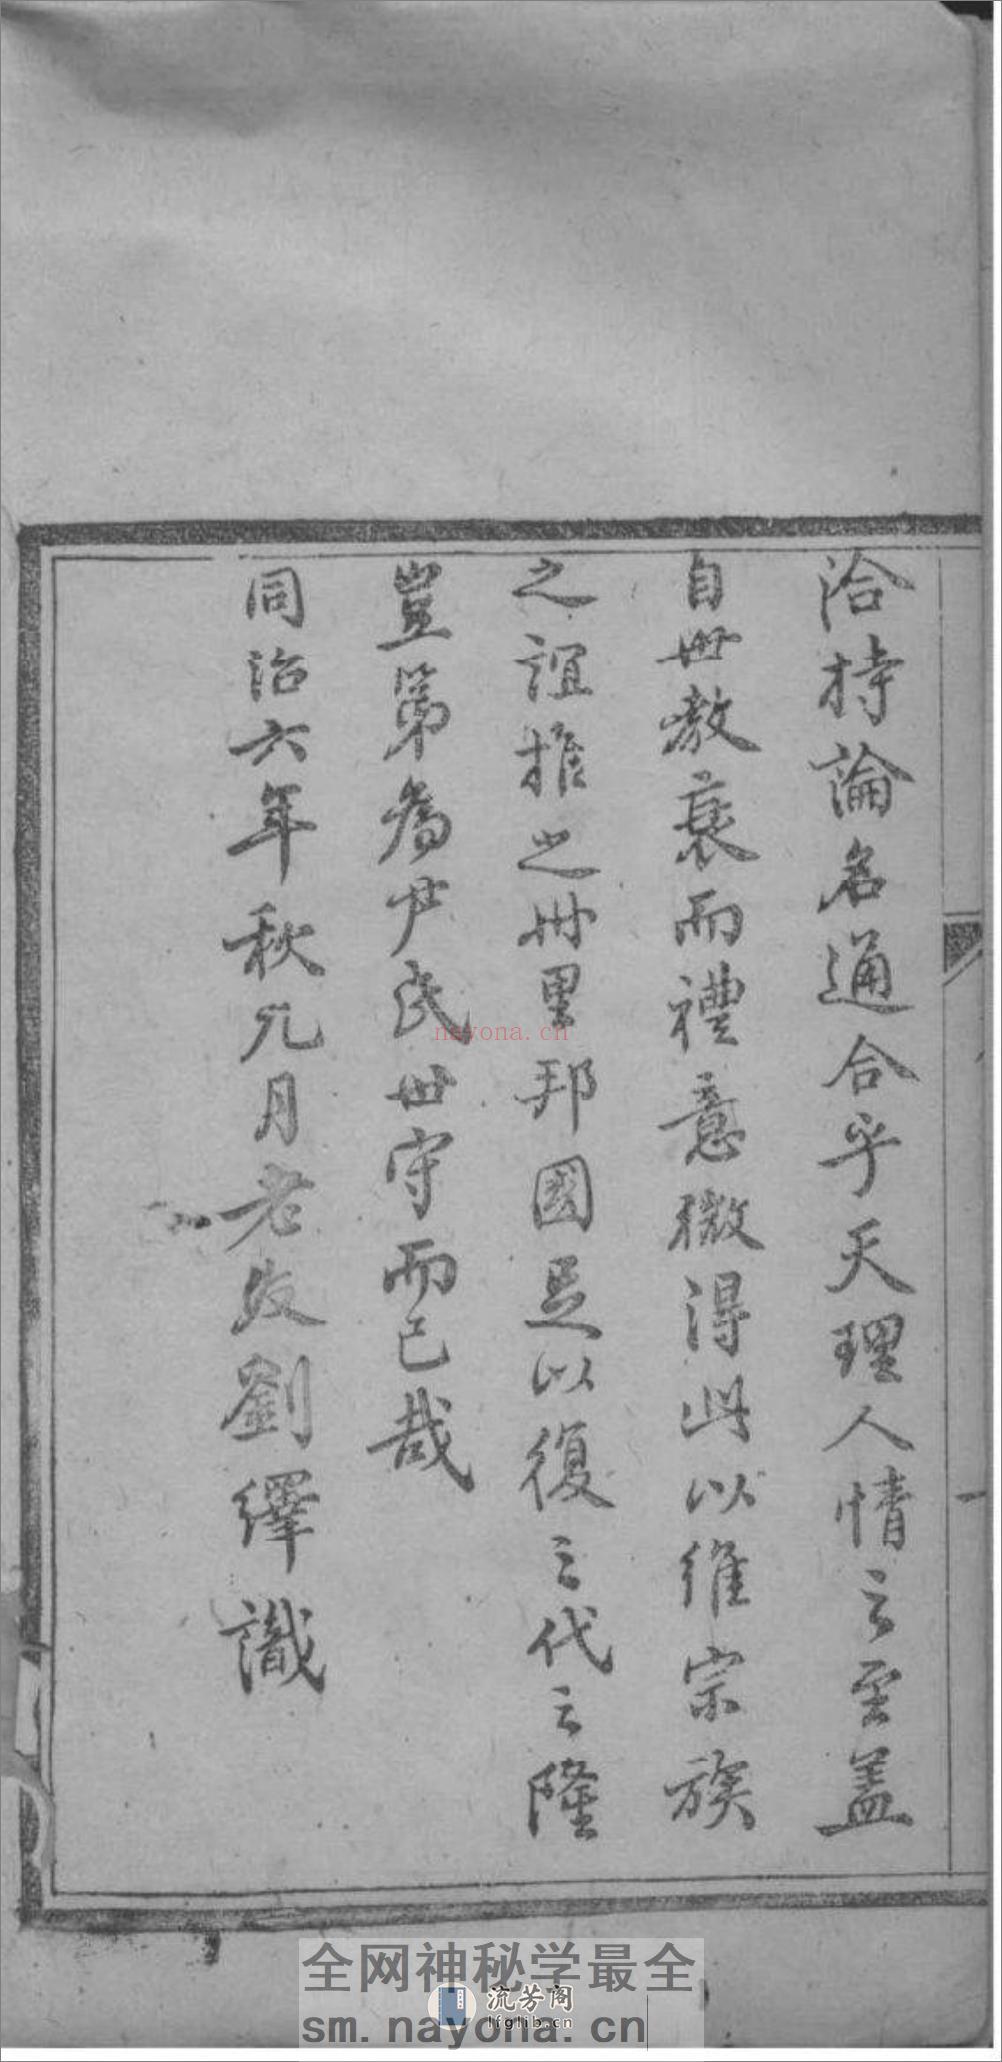 洽持論名通合乎天理人情之至盖
自世教衰而禮意微得此以維宗族
之誼推之州里邦國足以復三代之隆
豈第為尹氏世守而已哉
同治六年秋九月老友劉繹識
nayona.cn
全网神秘学最全
流芳阁
lfglib.cn
sm.nayona.cn